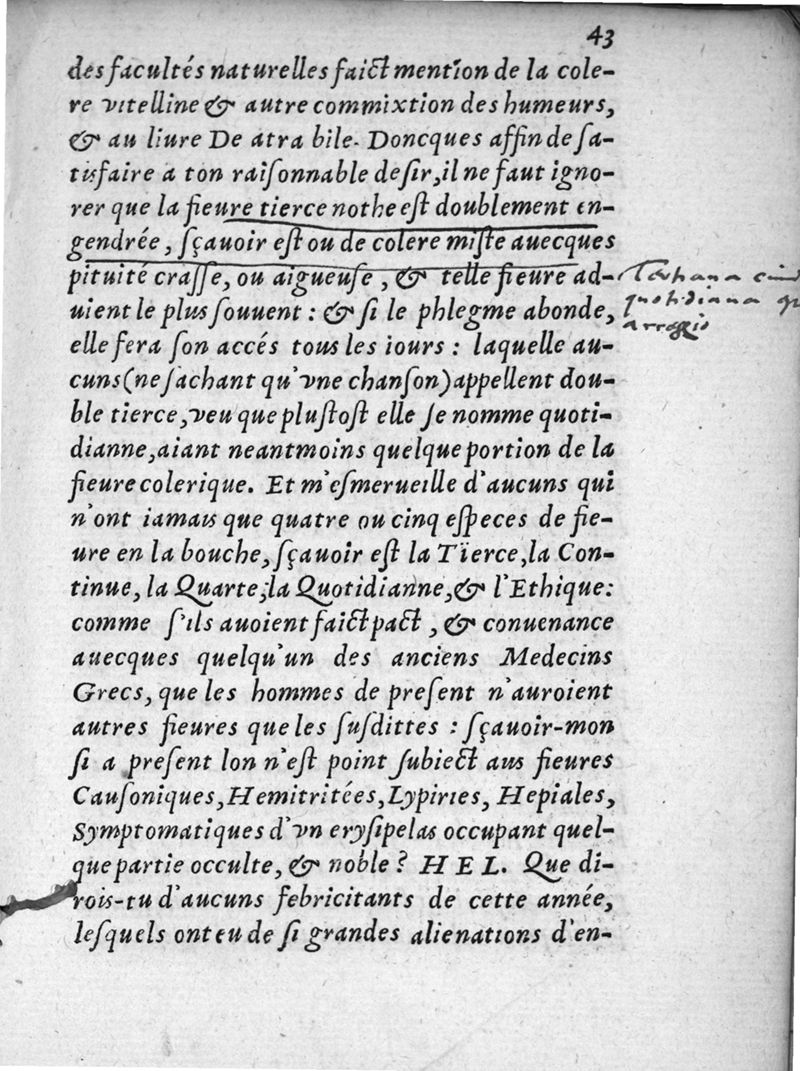 43
des facultés naturelles faict mention de la cole-
re vitelline & autre commixtion des humeurs,
& au liure De atra bile. Doncques affin de ſa-
tisfaire a ton raiſonnable deſir, il ne faut igno-
rer que la fieure tierce nothe eſt doublement en-
gendrée, ſçauoir eſt ou de colere miſte auecques
pituité craſſe, ou aigueuſe, & telle fieure ad-
uient le plus ſouuent : & ſi le phlegme abonde,
elle fera ſon accés tous les iours : laquelle au-
cuns (ne ſachant qu'vne chanſon) appellent dou-
ble tierce, veu que pluſtoſt elle ſe nomme quoti-
dianne, aiant neantmoins quelque portion de la
fieure colerique. Et m'eſmerueille d'aucuns qui
n'ont iamais que quatre ou cinq eſpeces de fie-
ure en la bouche, ſçauoir eſt la Tïerce, la Con-
tinue, la Quarte, la Quotidianne, & l'Ethique:
comme ſ'ils auoient faict pact, & conuenance
auecques quelqu'un des anciens Medecins
Grecs, que les hommes de preſent n'auroient
autres fieures que les ſuſdittes : ſçauoir-mon
ſi a preſent lon n'eſt point ſubiect aus fieures
Cauſoniques, Hemitritées, Lypiries, Hepiales,
Symptomatiques d'vn eryſipelas occupant quel-
que partie occulte, & noble? HEL. Que di-
rois-tu d'aucuns febricitants de cette année,
leſquels ont eu de ſi grandes alienations d'en-
quotidiana